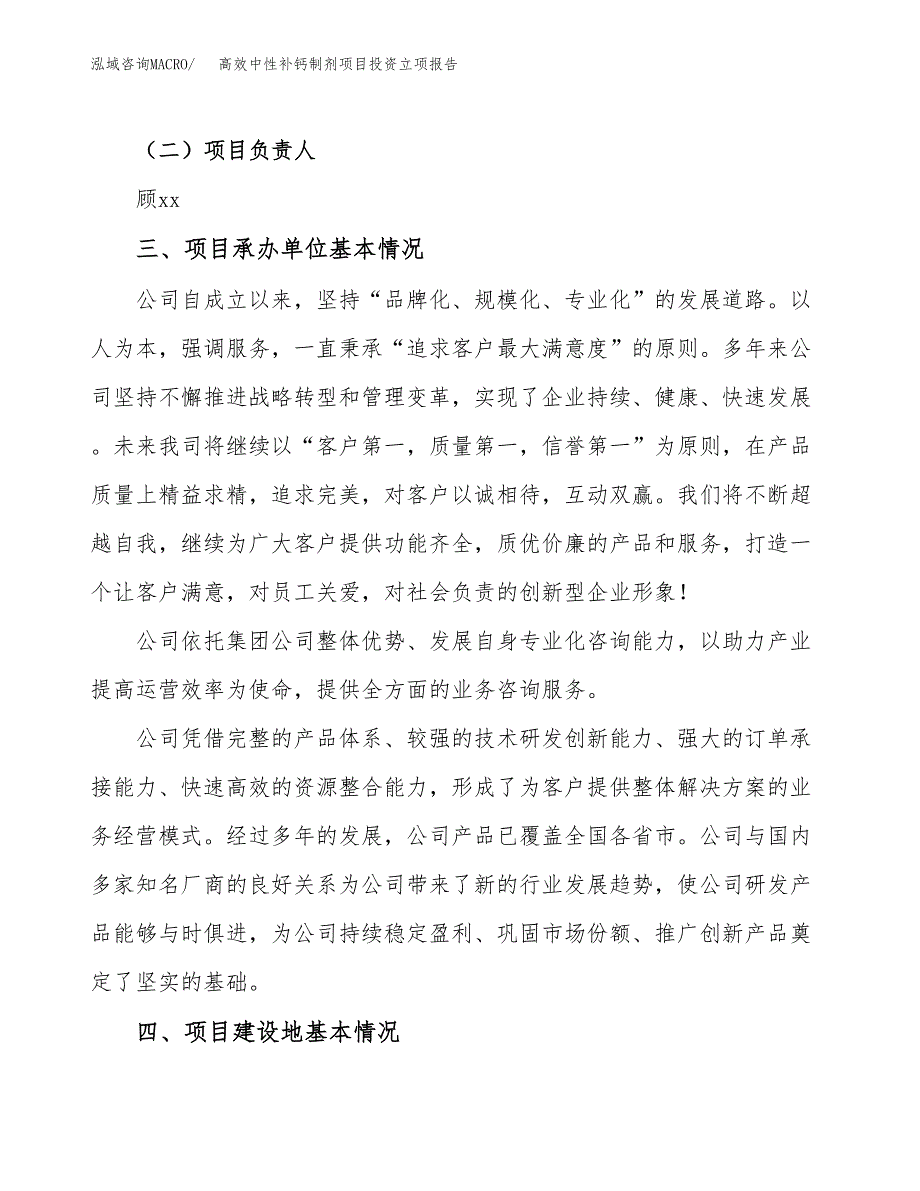 泓域咨询MACRO/ 高效中性补钙制剂项目投资立项报告
（二）项目负责人
顾xx
三、项目承办单位基本情况
公司自成立以来，坚持“品牌化、规模化、专业化”的发展道路。以
人为本，强调服务，一直秉承“追求客户最大满意度”的原则。多年来公
司坚持不懈推进战略转型和管理变革，实现了企业持续、健康、快速发展
。未来我司将继续以“客户第一，质量第一，信誉第一”为原则，在产品
质量上精益求精，追求完美，对客户以诚相待，互动双赢。我们将不断超
越自我，继续为广大客户提供功能齐全，质优价廉的产品和服务，打造一
个让客户满意，对员工关爱，对社会负责的创新型企业形象！
公司依托集团公司整体优势、发展自身专业化咨询能力，以助力产业
提高运营效率为使命，提供全方面的业务咨询服务。
公司凭借完整的产品体系、较强的技术研发创新能力、强大的订单承
接能力、快速高效的资源整合能力，形成了为客户提供整体解决方案的业
务经营模式。经过多年的发展，公司产品已覆盖全国各省市。公司与国内
多家知名厂商的良好关系为公司带来了新的行业发展趋势，使公司研发产
品能够与时俱进，为公司持续稳定盈利、巩固市场份额、推广创新产品奠
定了坚实的基础。
四、项目建设地基本情况